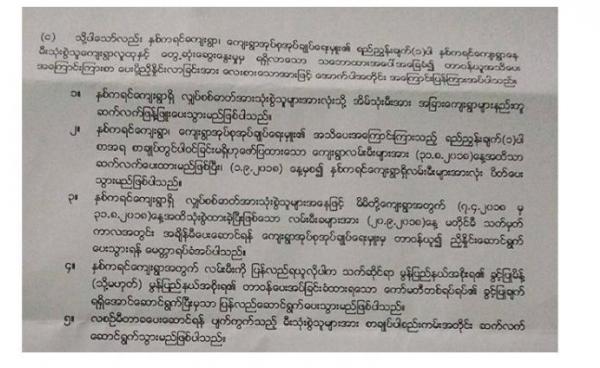 (c) သို့ပါသော်လည်း နှစ်ကရင်ကျေးရွာ၊ ကျေးရွာအုပ်စုအုပ်ချုပ်ရေးမှူး၏ ရည်ညွှန်းချက်(၁)ပါ နှစ်ကရင်ကျေးရွာနေ
မီးသုံးစွဲသူကျေးရွာလူထုနှင့် တွေ့ဆုံဆွေးနွေးမှုမှ ရရှိလာသော သဘောထားအပေါ်အခြေခံ၍ တာဝန်ယူအသိပေး
အကြောင်းကြားစာ ပေးပို့ညှိနှိုင်းလာခြင်းအား လေးစားသောအားဖြင့် အောက်ပါအတိုင်း အကြောင်းပြန်ကြားအပ်ပါသည်။
၁။ နှစ်ကရင်ကျေးရွာရှိ လျှပ်စစ်ဓာတ်အားသုံးစွဲသူများအားလုံးသို့ အိမ်သုံးမီးအား အခြားကျေးရွာများနည်းတူ
ဆက်လက်ဖြန့်ဖြူးပေးသွားမည်ဖြစ်ပါသည်။
၂။ နှစ်ကရင်ကျေးရွာ၊ ကျေးရွာအုပ်စုအုပ်ချုပ်ရေးမှူး၏ အသိပေးအကြောင်းကြားသည့် ရည်ညွှန်းချက်(၁)ပါ
စာအရ စာချုပ်တွင်ပါဝင်ခြင်းမရှိဟုဖော်ပြထားသော ကျေးရွာလမ်းမီးများအား (၃၁.၈.၂၀၁၈)နေ့အထိသာ
ဆက်လက်ပေးထားမည်ဖြစ်ပြီး၊ (၁.၉.၂၀၁၈) နေ့မှစ၍ နှစ်ကရင်ကျေးရွာရှိလမ်းမီးများအားလုံး ပိတ်ပေး
သွားမည်ဖြစ်ပါသည်။
၃။ နှစ်ကရင်ကျေးရွာရှိ လျှပ်စစ်ဓာတ်အားသုံးစွဲသူများအနေဖြင့် မိမိတို့ကျေးရွာအတွက် (၇.၄.၂၀၁၈ မှ
၃၁.၈.၂၀၁၈)နေ့အထိသုံးစွဲထားခဲ့ပြီးဖြစ်သော လမ်းမီးခများအား (၂၀.၉.၂၀၁၈)နေ့ မတိုင်မီ သတ်မှတ်
ကာလအတွင်း အချိန်မီပေးဆောင်ရန် ကျေးရွာအုပ်စုအုပ်ချုပ်ရေးမှူးမှ တာဝန်ယူ၍ ညှိနှိုင်းဆောင်ရွက်
ပေးသွားရန် မေတ္တာရပ်ခံအပ်ပါသည်။
၄။ နှစ်ကရင်ကျေးရွာအတွက် လမ်းမီးကို ပြန်လည်ရယူလိုပါက သက်ဆိုင်ရာ မွန်ပြည်နယ်အစိုးရ၏ ခွင့်ပြုမိန့်
(သို့မဟုတ်) မွန်ပြည်နယ်အစိုးရ၏ တာဝန်ပေးအပ်ခြင်းခံထားရသော ကော်မတီတစ်ရပ်ရပ်၏ ခွင့်ပြုချက်
ရရှိအောင်ဆောင်ရွက်ပြီးမှသာ ပြန်လည်ဆောင်ရွက်ပေးသွားမည်ဖြစ်ပါသည်။
၅။ လစဉ်မီတာခပေးဆောင်ရန် ပျက်ကွက်သည့် မီးသုံးစွဲသူများအား စာချုပ်ပါစည်းကမ်းအတိုင်း ဆက်လက်
ဆောင်ရွက်သွားမည်ဖြစ်ပါသည်။